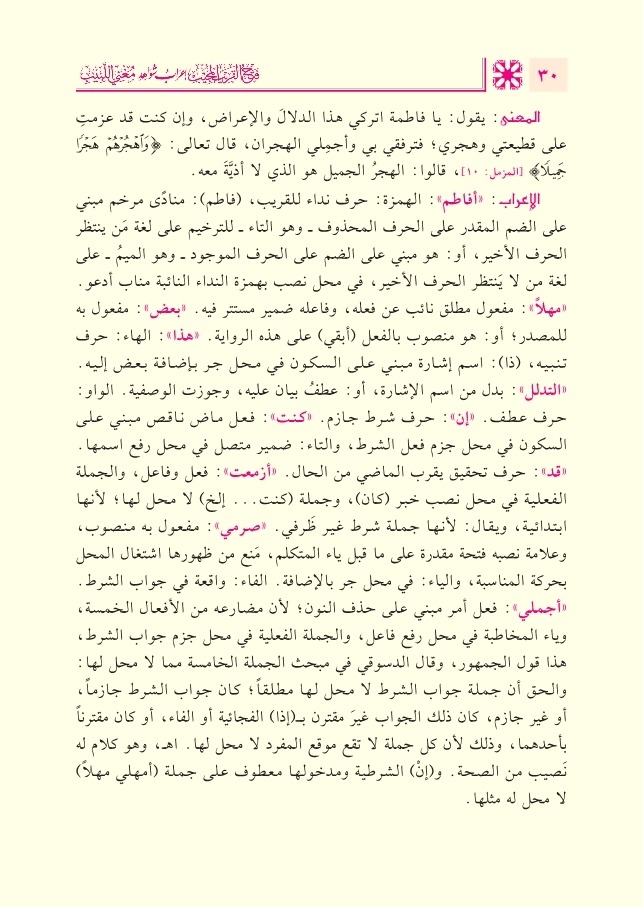 ٣٠ فتح القريب المجيب إعراب شواهد مغني اللبيب
المعنى: يقول: يا فاطمة اتركي هذا الدلالَ والإعراض، وإن كنت قد عزمتِ
على قطيعتي وهجري؛ فترفقي بي وأجمِلي الهجران، قال تعالى: ﴿وَٱهْجُرْهُمْ هَجْرًا
جَمِيلًا﴾ [المزمل: ١٠]، قالوا: الهجرُ الجميل هو الذي لا أذيَّةَ معه.
الإعراب: «أفاطم»: الهمزة: حرف نداء للقريب، (فاطم): منادًى مرخم مبني
على الضم المقدر على الحرف المحذوف ـ وهو التاء ـ للترخيم على لغة مَن ينتظر
الحرف الأخير، أو: هو مبني على الضم على الحرف الموجود ـ وهو الميمُ ـ على
لغة من لا يَنتظر الحرف الأخير، في محل نصب بهمزة النداء النائبة مناب أدعو.
«مهلاً»: مفعول مطلق نائب عن فعله، وفاعله ضمير مستتر فيه. «بعض»: مفعول به
للمصدر؛ أو: هو منصوب بالفعل (أبقي) على هذه الرواية. «هذا»: الهاء: حرف
تنبيه، (ذا): اسم إشارة مبني على السكون في محل جر بإضافة بعض إليه.
«التدلل»: بدل من اسم الإشارة، أو: عطفُ بيان عليه، وجوزت الوصفية. الواو:
حرف عطف. «إن»: حرف شرط جازم. «كنت»: فعل ماض ناقص مبني على
السكون في محل جزم فعل الشرط، والتاء: ضمير متصل في محل رفع اسمها.
«قد»: حرف تحقيق يقرب الماضي من الحال. «أزمعت»: فعل وفاعل، والجملة
الفعلية في محل نصب خبر (كان)، وجملة (كنت... إلخ) لا محل لها؛ لأنها
ابتدائية، ويقال: لأنها جملة شرط غير ظَرفي. «صرمي»: مفعول به منصوب،
وعلامة نصبه فتحة مقدرة على ما قبل ياء المتكلم، مَنع من ظهورها اشتغال المحل
بحركة المناسبة، والياء: في محل جر بالإضافة. الفاء: واقعة في جواب الشرط.
«أجملي»: فعل أمر مبني على حذف النون؛ لأن مضارعه من الأفعال الخمسة،
وياء المخاطبة في محل رفع فاعل، والجملة الفعلية في محل جزم جواب الشرط،
هذا قول الجمهور، وقال الدسوقي في مبحث الجملة الخامسة مما لا محل لها:
والحق أن جملة جواب الشرط لا محل لها مطلقاً؛ كان جواب الشرط جازماً،
أو غير جازم، كان ذلك الجواب غيرَ مقترن بـ(إذا) الفجائية أو الفاء، أو كان مقترناً
بأحدهما، وذلك لأن كل جملة لا تقع موقع المفرد لا محل لها. اهـ، وهو كلام له
نَصيب من الصحة. و(إنْ) الشرطية ومدخولها معطوف على جملة (أمهلي مهلاً)
لا محل له مثلها.